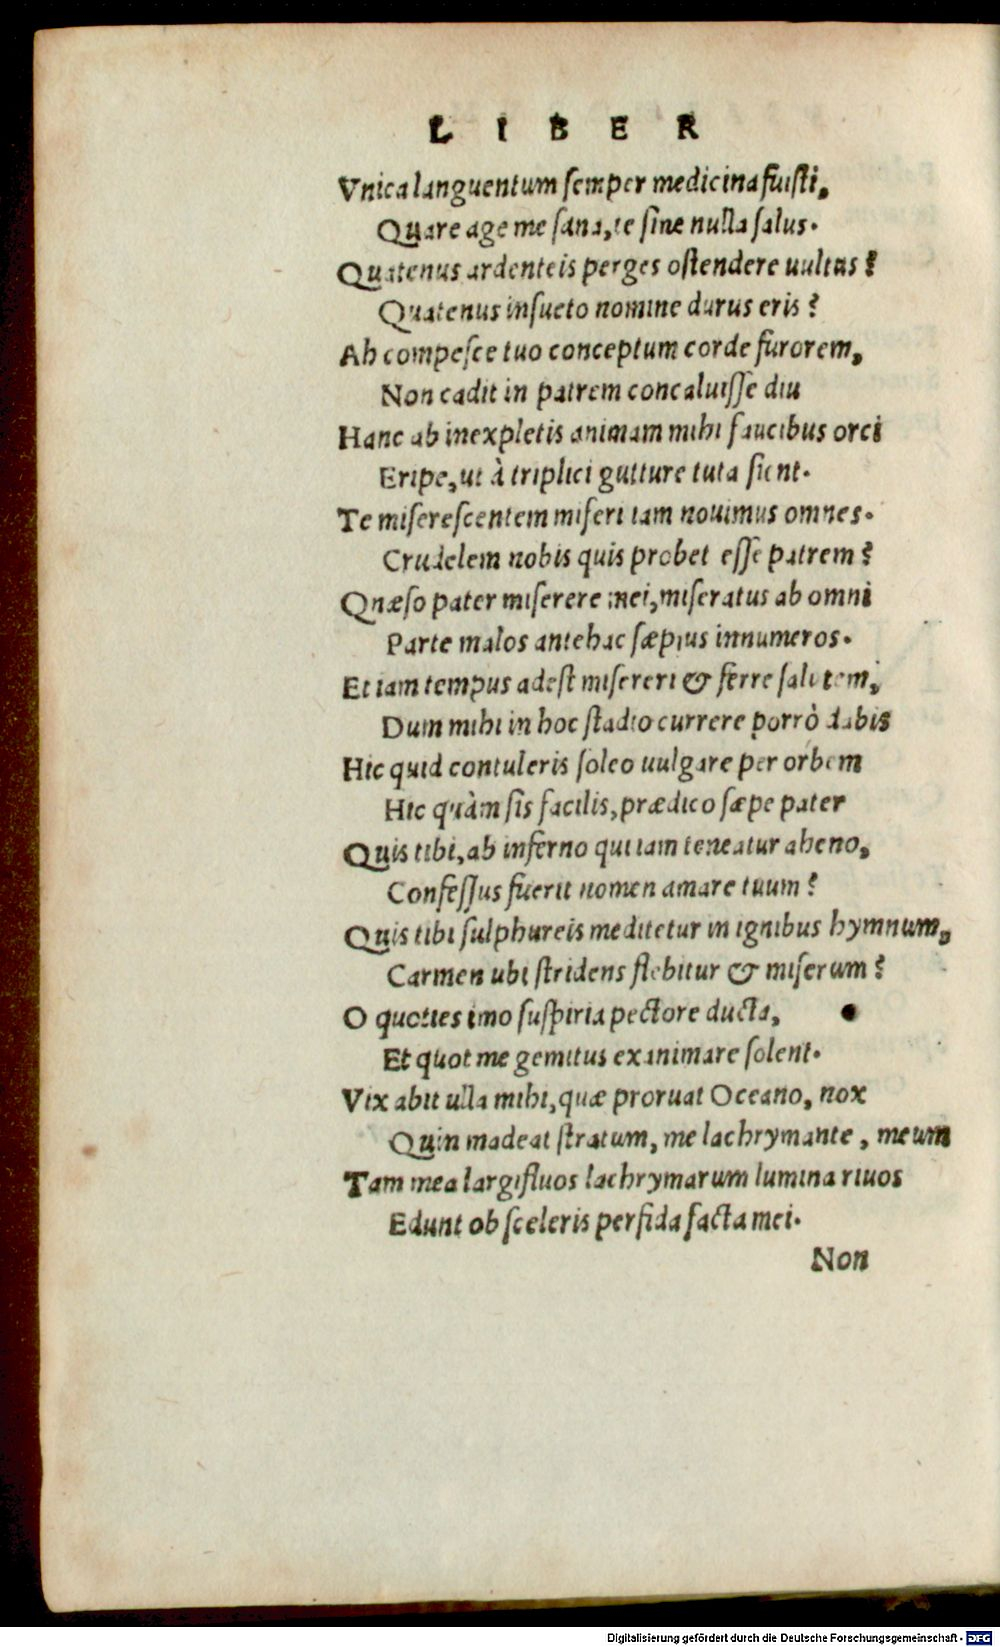 LIBER
Vnica languentum semper medicina fuisti,
Quare age me sana, te sine nulla salus.
Quatenus ardenteis perges ostendere uultus?
Quatenus insueto nomine durus eris?
Ah compesce tuo conceptum corde furorem,
Non cadit in patrem concaluisse diu
Hanc ab inexpletis animam mihi faucibus orci
Eripe, ut à triplici gutture tuta sient.
Te miserescentem miseri iam nouimus omnes.
Crudelem nobis quis probet esse patrem?
Quæso pater miserere mei, miseratus ab omni
Parte malos antehac sæpius innumeros.
Et iam tempus adest misereri & ferre salutem,
Dum mihi in hoc stadio currere porrò dabis
Hic quid contuleris soleo uulgare per orbem
Hic quàm sis facilis, prædico sæpe pater
Quis tibi, ab inferno qui iam teneatur aheno,
Confessus fuerit nomen amare tuum?
Quis tibi sulphureis meditetur in ignibus hymnum,
Carmen ubi stridens flebitur & miserum?
O quoties imo suspiria pectore ducta,
Et quot me gemitus exanimare solent.
Vix abit ulla mihi, quæ proruat Oceano, nox
Quin madeat stratum, me lachrymante, meum
Tam mea largifluos lachrymarum lumina riuos
Edunt ob sceleris perfida facta mei.
Non
Digitalisierung gefördert durch die Deutsche Forschungsgemeinschaft - DFG